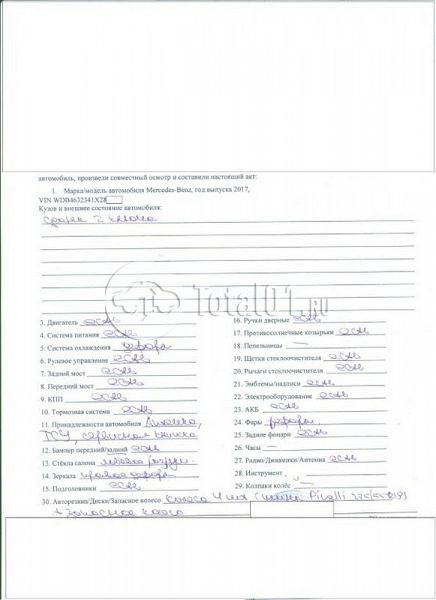 автомобиль, произвели совместный осмотр и составили настоящий акт:
1. Марка/модель автомобиля Mercedes-Benz, год выпуска 2017,
VIN WDB4632341X28
Кузов и внешнее состояние автомобиля:
Total01.ru
3. Двигатель есть
4. Система питания есть
5. Система охлаждения
6. Рулевое управление есть
7. Задний мост есть
8. Передний мост есть
9. КПП есть
10. Тормозная система есть
11. Принадлежности автомобиля Аптечка,
сервисная книжка
12. Бампер передний/задний есть
13. Стёкла салона
14. Зеркала
15. Подголовники есть
16. Ручки дверные есть
17. Противосолнечные козырьки есть
18. Пепельницы —
19. Щетки стеклоочистителя есть
20. Рычаги стеклоочистителя есть
21. Эмблемы/надписи есть
22. Электрооборудование есть
23. АКБ есть
24. Фары
25. Задние фонари есть
26. Часы —
27. Радио/Динамики/Антенна есть
28. Инструмент
29. Колпаки колёс —
30. Авторезина/Диски/Запасное колесо колеса 4 шт Pirelli
+ запасное колесо